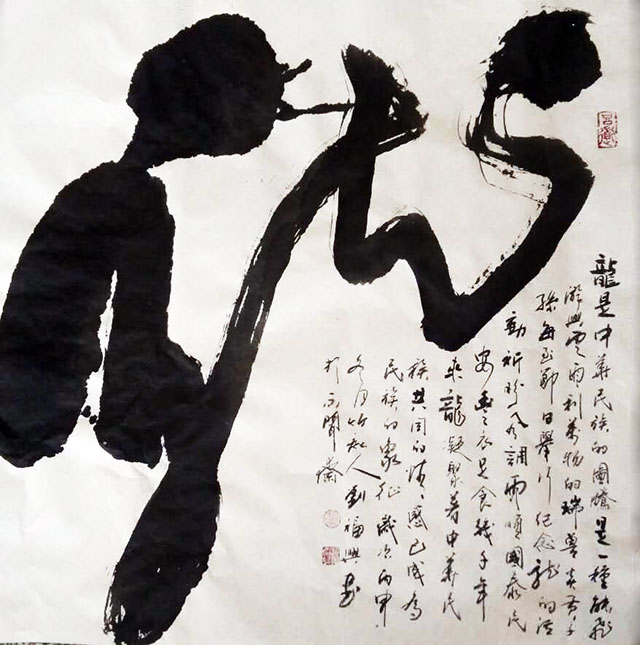 龍
龍是中華民族的圖騰是一種能飛
興雲雨利萬物的瑞兽炎黄子
孫每至節日舉行紀念龍的活
動祈盼風調雨順國泰民
安豐衣足食幾千年
來龍凝聚着中華民
族共同的情感已成為
民族的象征歲次丙申
冬月竹人劉福興
於聞齋